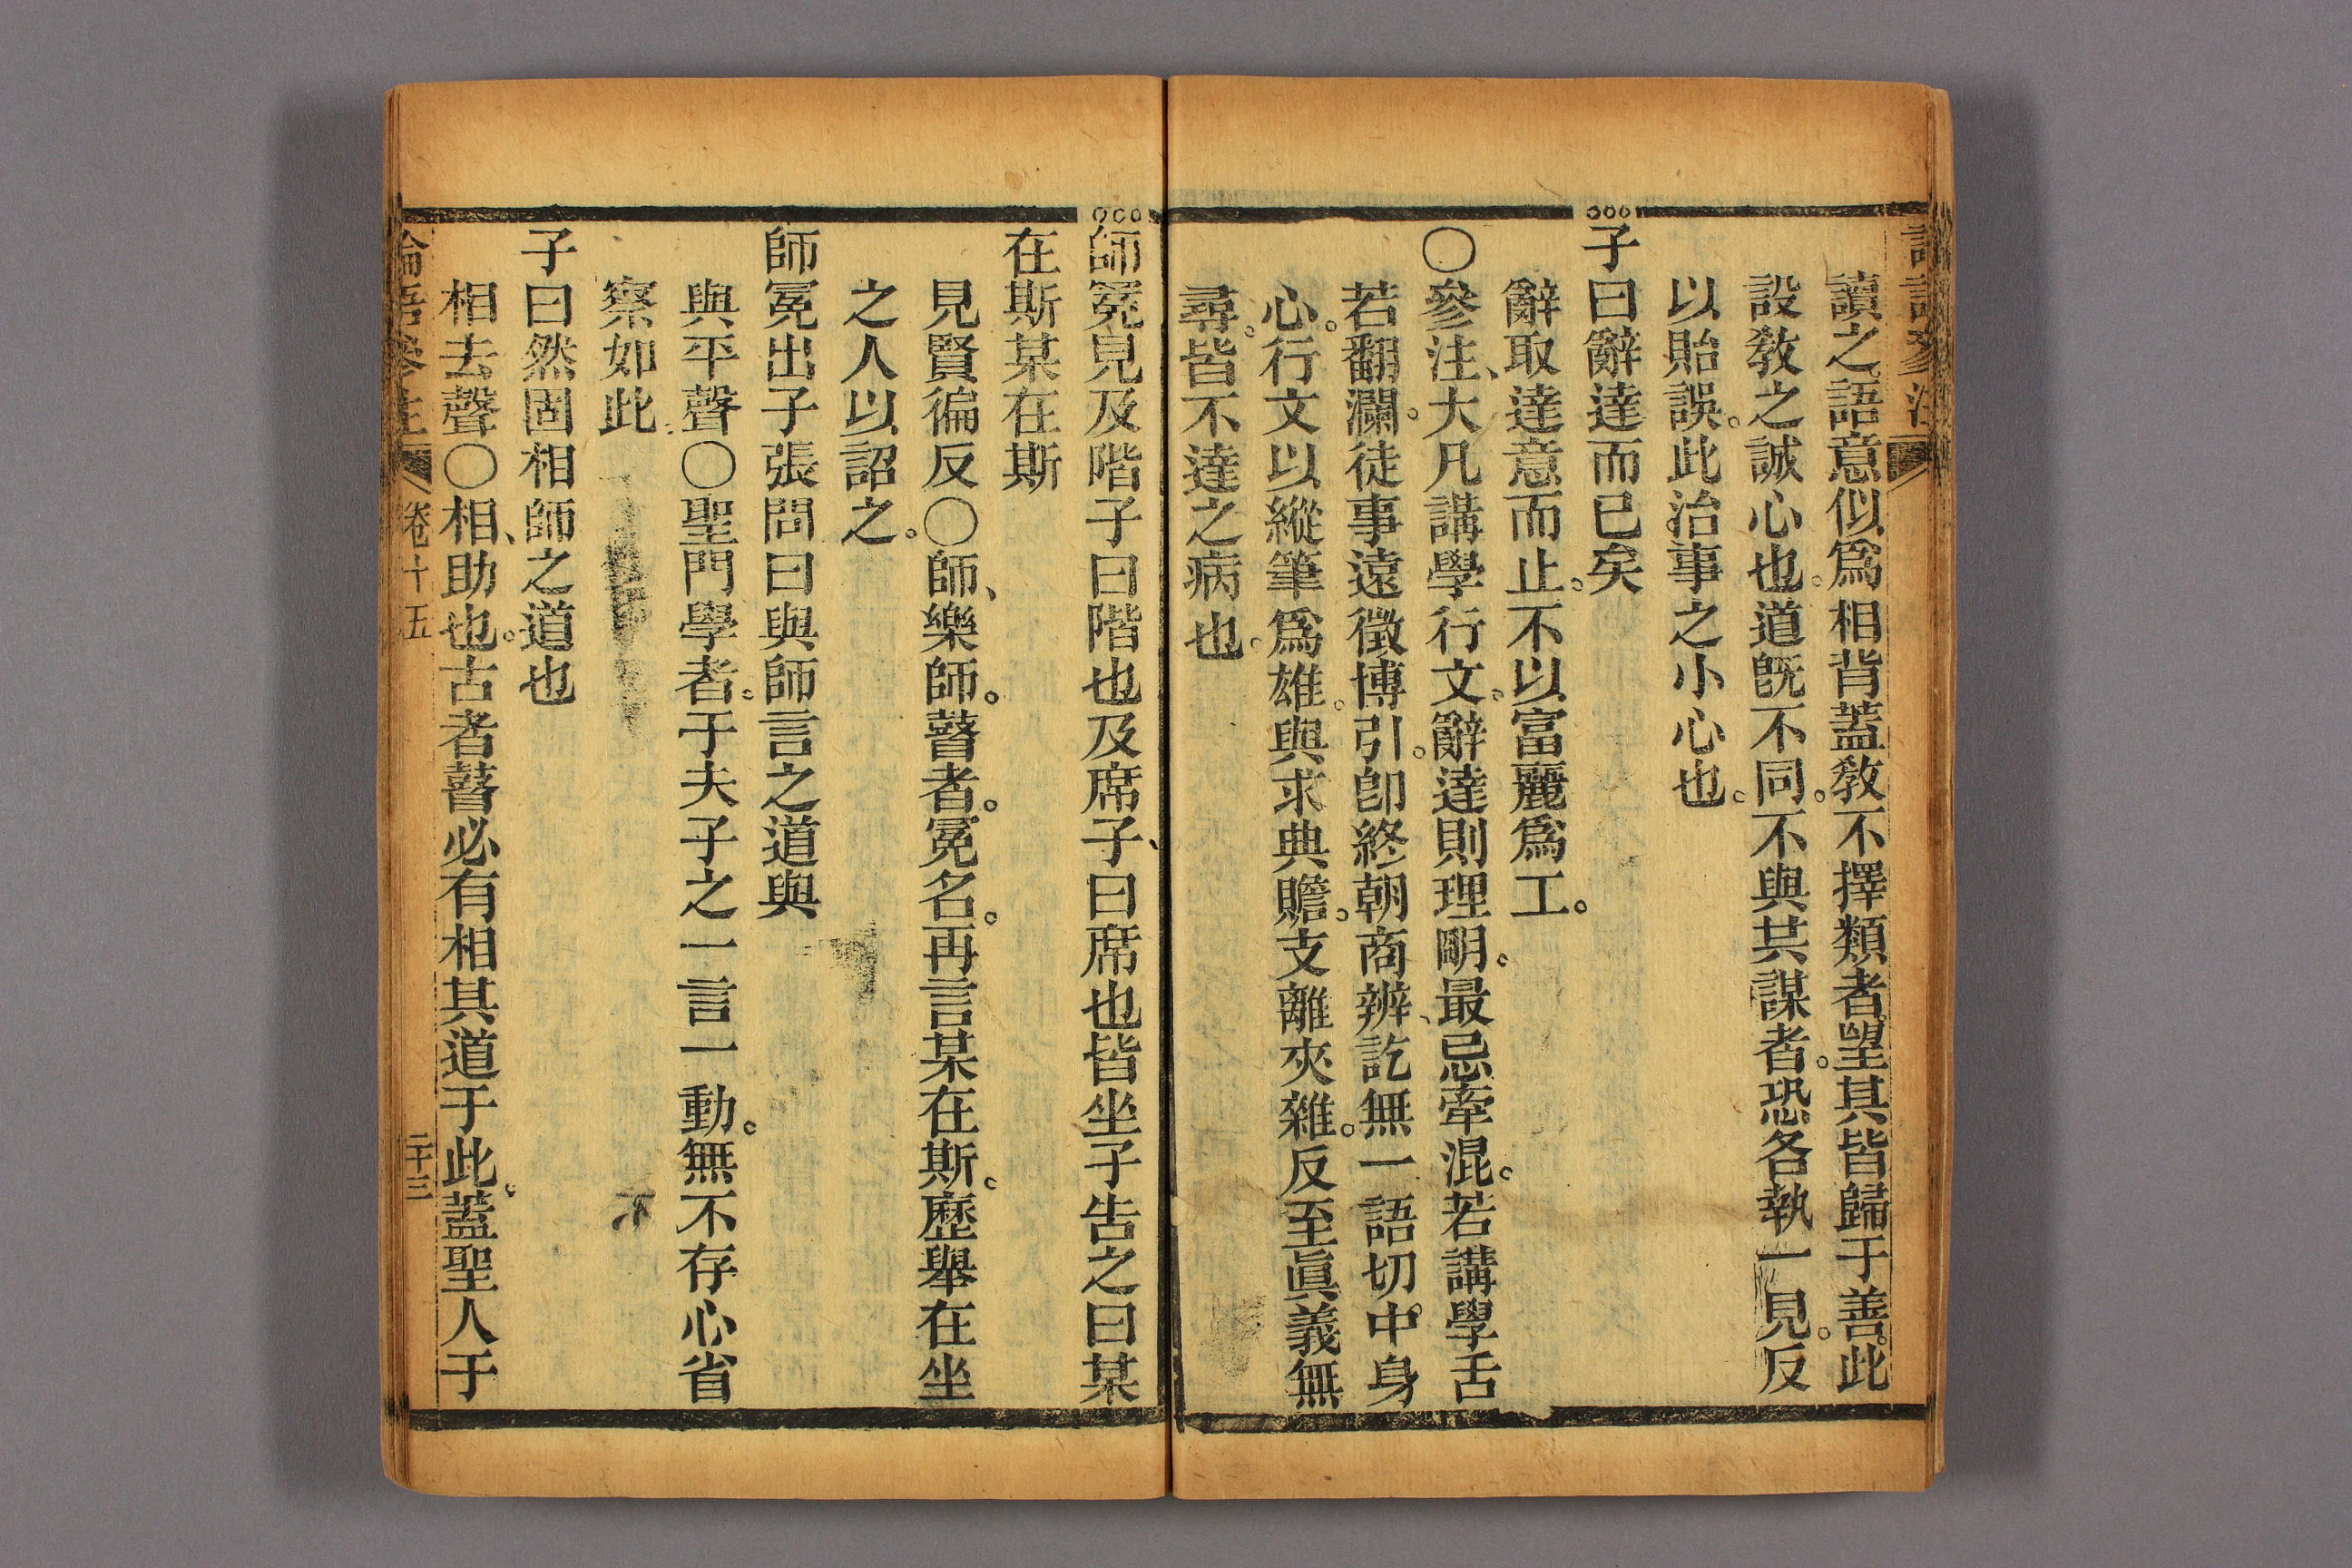 讀之。語意似爲相背蓋敎不擇類者。望其皆歸于善。此
設敎之誠心也。道旣不同。不與共謀者。恐各執一見。反
以貽誤。此治事之小心也。
子曰辭達而已矣
辭取達意而止。不以富麗爲工。
〇參注、大凡講學行文。辭達則理明。最忌牽混。若講學舌
若翻瀾。徒事遠徵博引。卽終朝商辨、訖無一語切中身
心。行文以縱筆爲雄。與求典贍。支離夾雜。反至眞義無
尋。皆不達之病也。
師冕見及階子曰階也及席子曰席也皆坐子告之曰某
在斯某在斯
見賢徧反〇師、樂師。瞽者。冕名。再言某在斯。歷舉在坐
之人以詔之。
師冕出子張問曰與師言之道與
與平聲〇聖門學者。于夫子之一言一動。無不存心省
察如此
子曰然固相師之道也
相去聲〇相、助也。古者瞽必有相其道于此。蓋聖人于
論語參注 卷十五 二十三